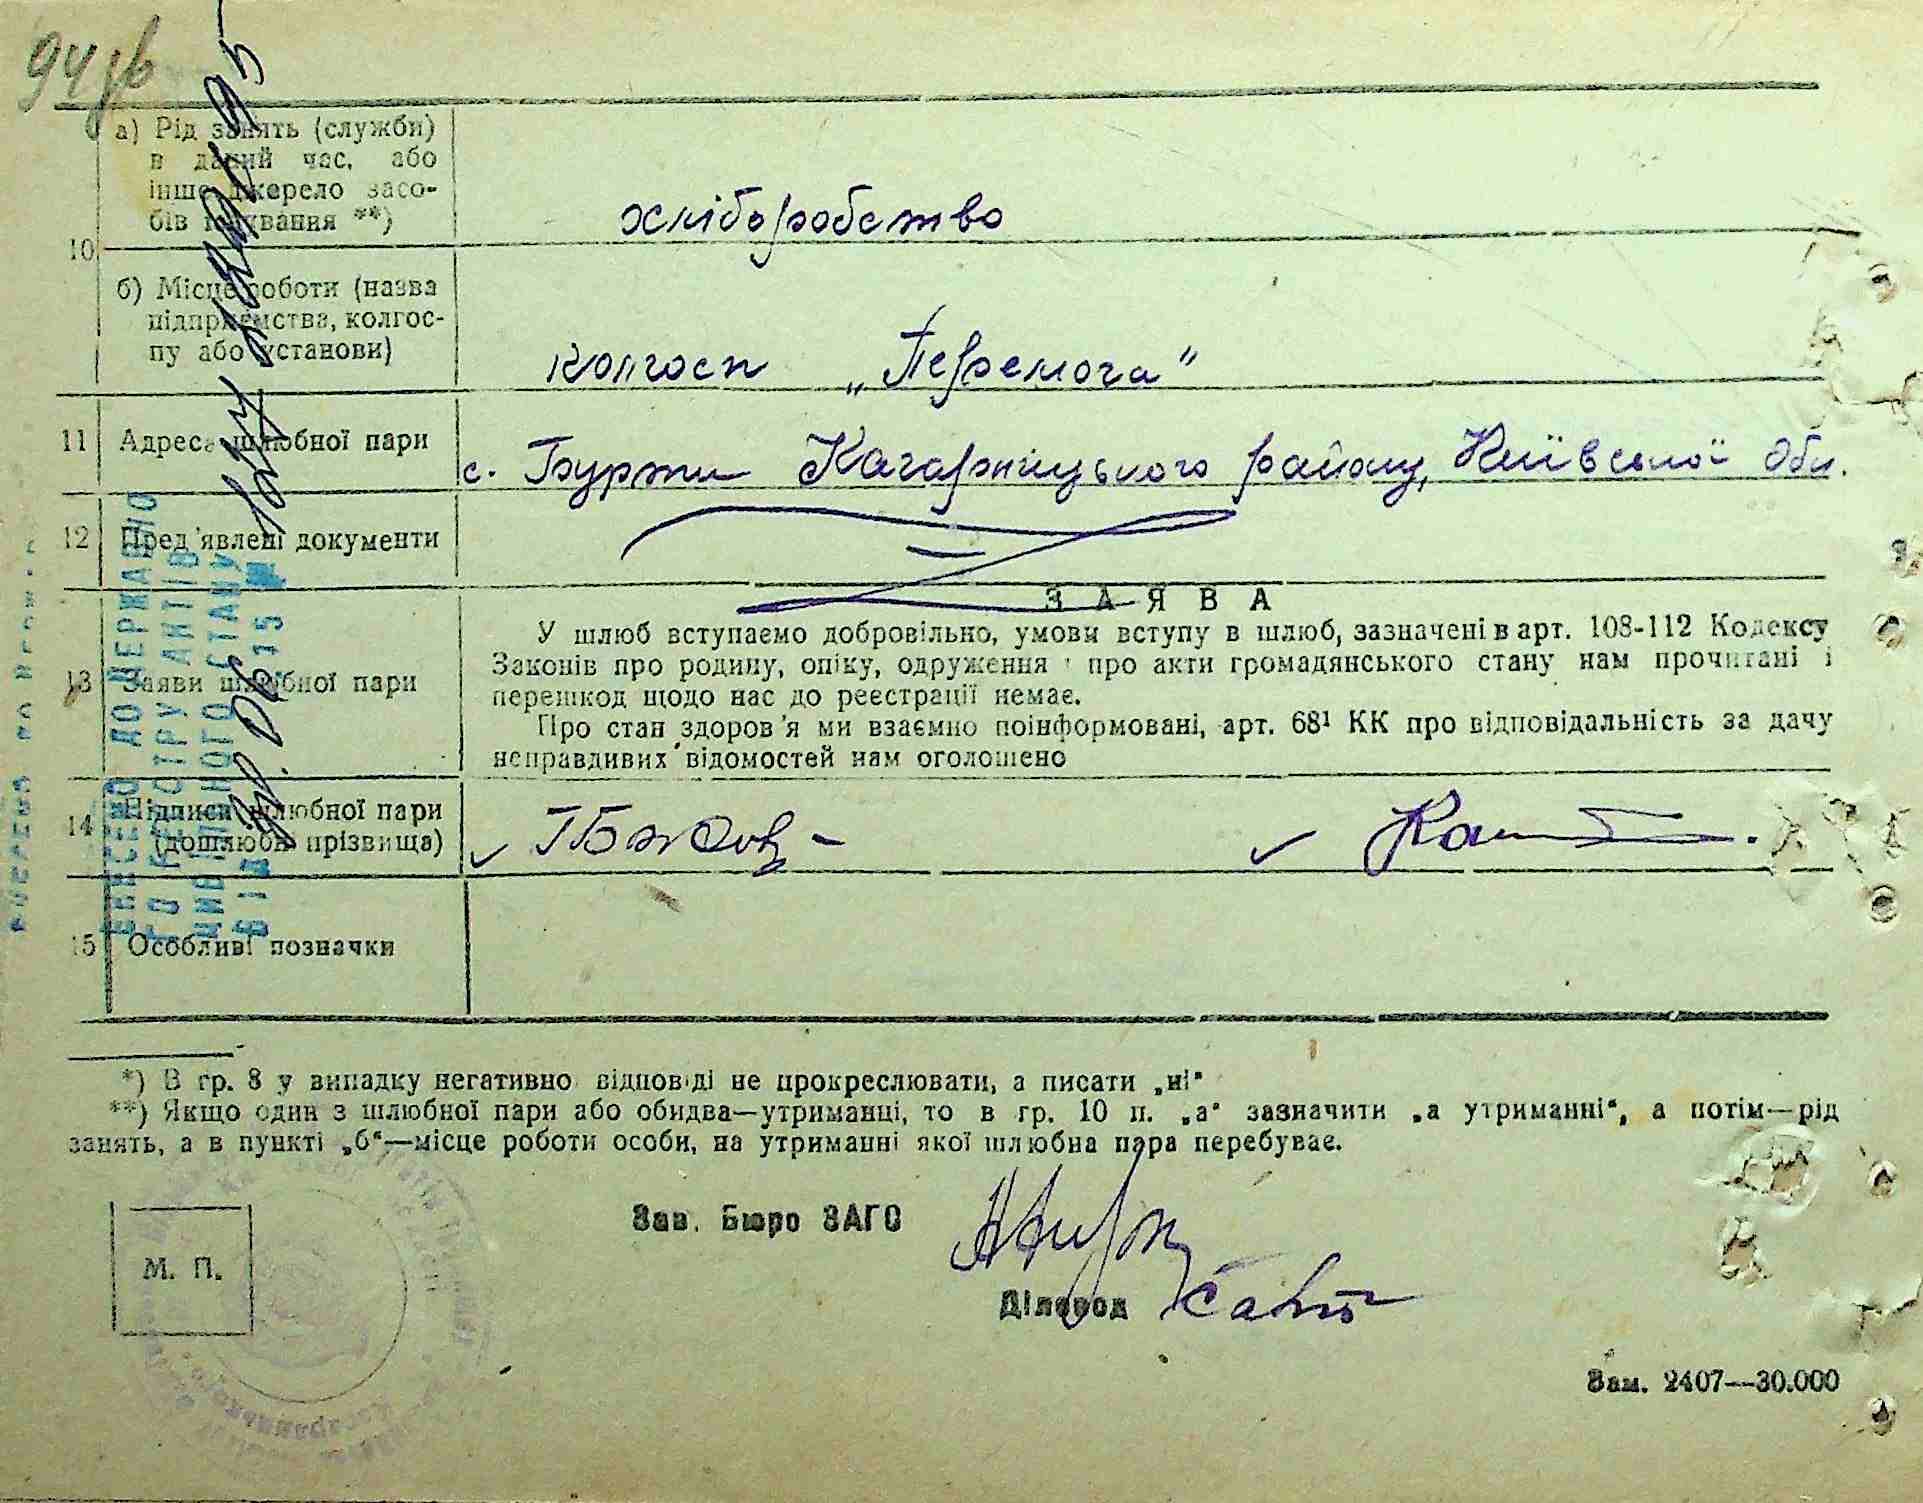 94 зв
10
а) Рід занять (служби)
в даний час, або
інше джерело засо-
бів існування **)
хліборобство
б) Місце роботи (назва
підприємства, колгос-
пу або установи)
колгосп „Перемога"
11 Адреса шлюбної пари
с. Бурти Кагарлицького району, Київської обл.
12 Пред'явлені документи
13 Заяви шлюбної пари
ЗАЯВА
У шлюб вступаємо добровільно, умови вступу в шлюб, зазначені в арт. 108-112 Кодексу
Законів про родину, опіку, одруження і про акти громадянського стану нам прочитані і
перешкод щодо нас до реєстрації немає.
Про стан здоров'я ми взаємно поінформовані, арт. 68¹ КК про відповідальність за дачу
неправдивих відомостей нам оголошено
14 Підписи шлюбної пари
(дошлюбні прізвища)
15 Особливі позначки
ВНЕСЕНО ДО ДЕРЖАВНО
ГО РЕЄСТРУ АКТІВ
ЦИВІЛЬНОГО СТАНУ
ВІД 15
*) В гр. 8 у випадку негативної відповіді не прокреслювати, а писати „ні"
**) Якщо один з шлюбної пари або обидва—утриманці, то в гр. 10 п. „а" зазначити „а утриманні", а потім—рід
занять, а в пункті „б"—місце роботи особи, на утриманні якої шлюбна пара перебуває.
М. П.
Зав. Бюро ЗАГС
Діловод
Зам. 2407—30.000